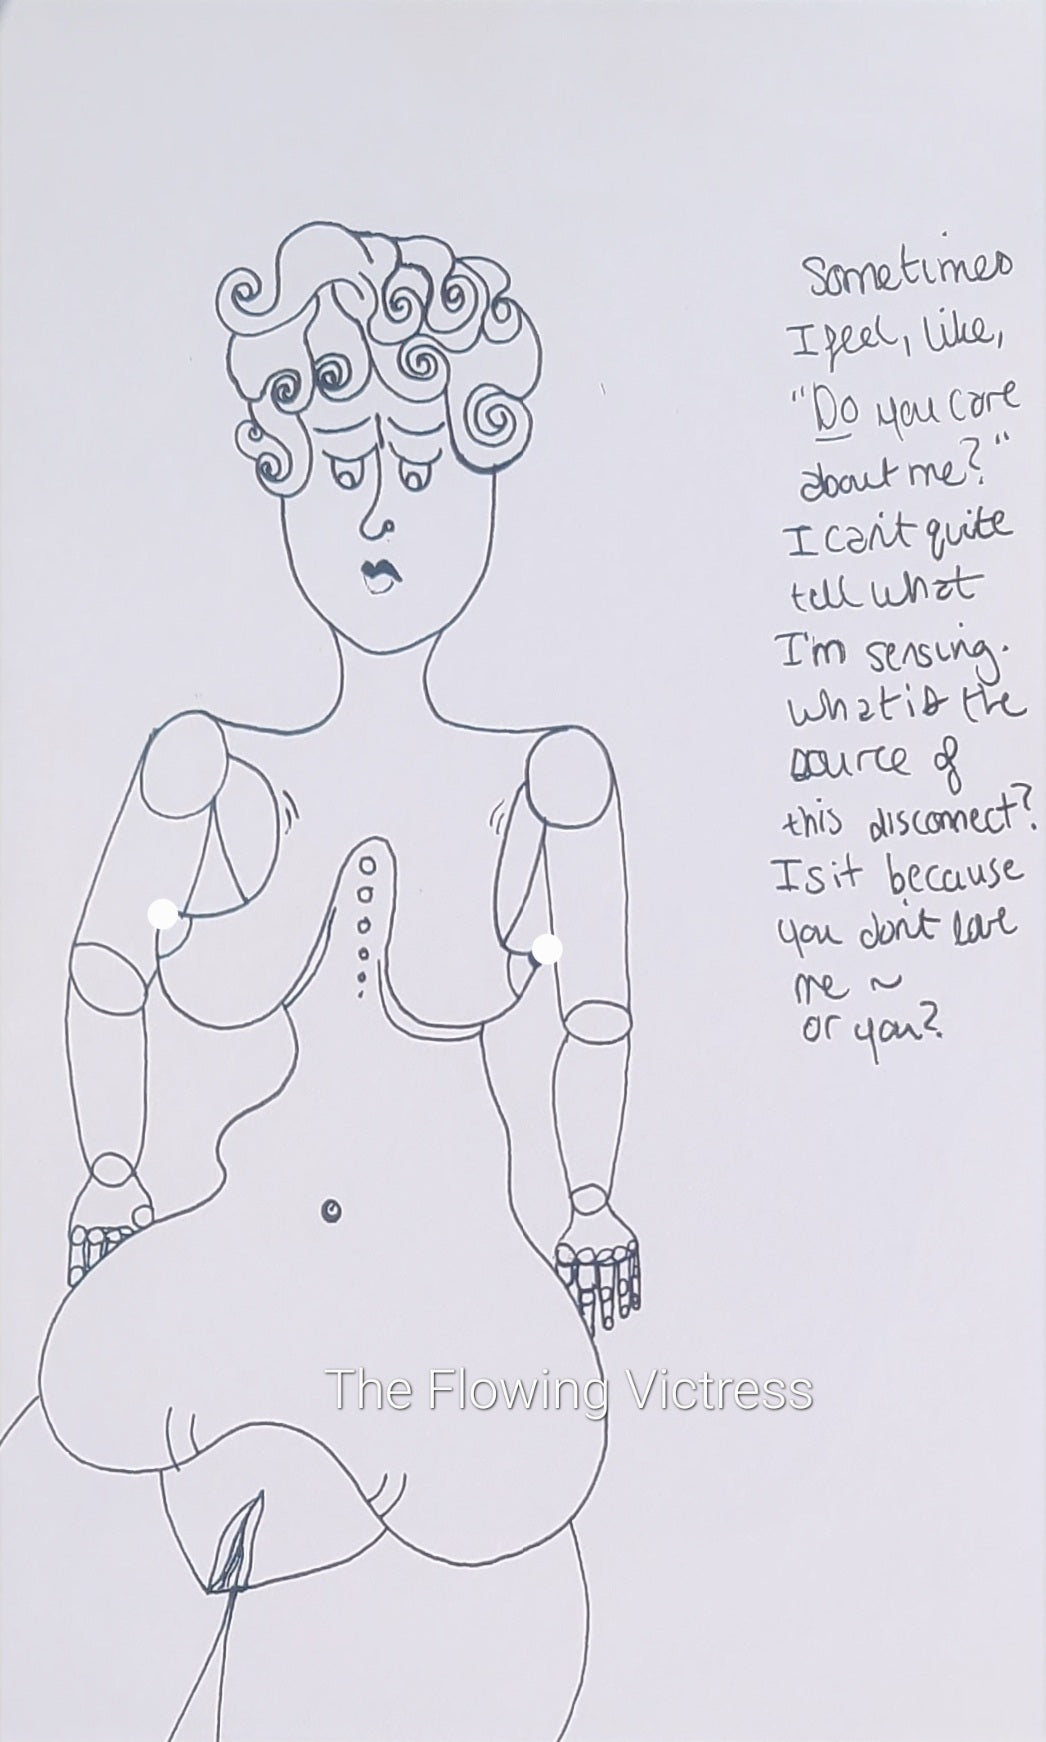 Sometimes
I feel, like,
"Do you care
about me?"
I can't quite
tell what
I'm sensing.
What is the
source of
this disconnect?
Is it because
you don't love
me ~
or you?
The Flowing Victress